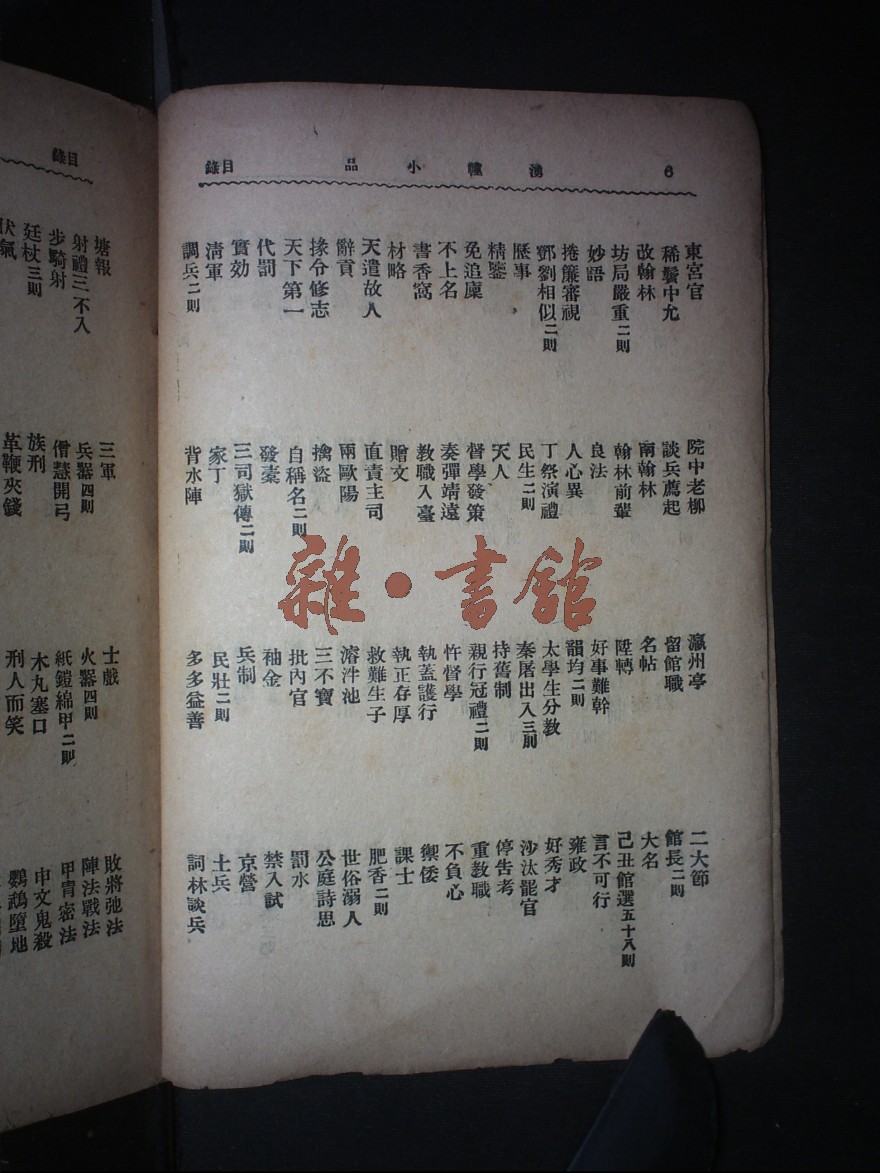 6 湧幢小品 目錄
東宮官 院中老柳 瀛州亭 二大節
稀鬢中允 談兵薦起 留館職 館長二則
改翰林 南翰林 名帖 大名
坊局嚴重二則 翰林前輩 陞轉 己丑館選五十八則
妙語 良法 好事難幹 言不可行
捲簾審視 人心異 韻均二則 雍政
鄧劉相似二則 丁祭演禮 太學生分教 好秀才
歷事 民生二則 秦屠出入三則 沙汰罷官
精鑒 天人 持舊制 停告考
免追廩 督學發策 親行冠禮二則 重教職
不上名 奏彈靖遠 忤督學 不負心
書香窩 教職入臺 執蓋護行 禦倭
材略 贈文 執正存厚 課士
天遣故人 直責主司 救難生子 肥香二則
辭貢 兩歐陽 濬泮池 世俗溺人
掾令修志 擒盜 三不寶 公庭詩思
天下第一 自稱名二則 批內官 罰水
代罰 發橐 袖金 禁入試
實効 三司獄傳二則 兵制 京營
清軍 家丁 民壯二則 土兵
調兵二則 背水陣 多多益善 詞林談兵
雜·書館
目錄
塘報 三軍 士戲 敗將弛法
射禮三不入 兵器四則 火器四則 陣法戰法
步騎射 僧慧開弓 紙鎧綿甲二則 甲冑密法
廷杖三則 族刑 木丸塞口 申文鬼殺
伏氣 革鞭夾錢 刑人而笑 鸚鵡墮地